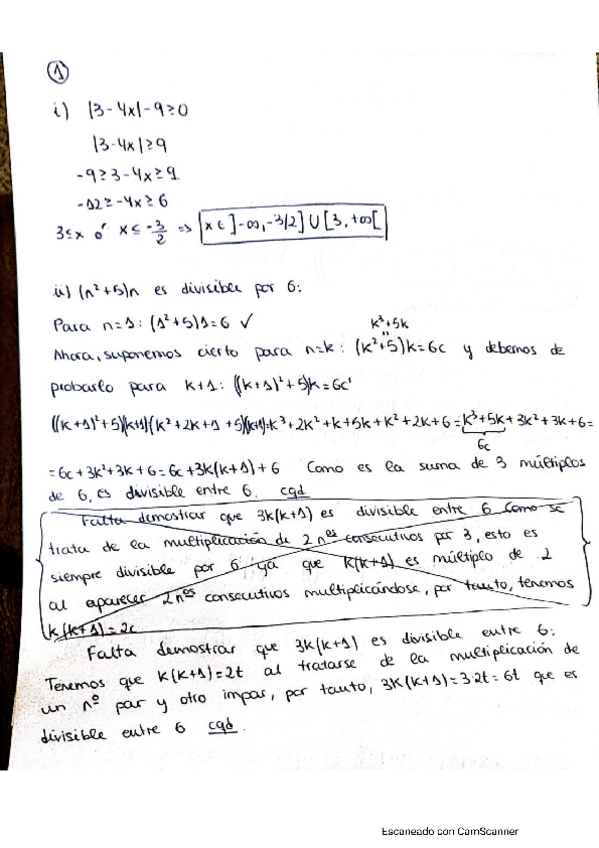 ①
i) |3-4x|-9≥0
|3-4x|≥9
-9≥3-4x≥9
-12≥-4x≥6
3≤x o' x≤-3/2 ⇒ x∈]-∞,-3/2]∪[3,+∞[
ii) (n²+5)n es divisible por 6:
Para n=1: (1²+5)1=6 ✓
k³+5k
"
Ahora, suponemos cierto para n=k: (k²+5)k=6c y debemos de
probarlo para k+1: ((k+1)²+5)k=6c'
((k+1)²+5)(k+1)=(k²+2k+1+5)(k+1)=k³+2k²+k+5k+k²+2k+6=k³+5k+3k²+3k+6=
6c
=6c+3k²+3k+6=6c+3k(k+1)+6 Como es la suma de 3 múltiplos
de 6, es divisible entre 6. cqd
Falta demostrar que 3k(k+1) es divisible entre 6 Como se
trata de la multiplicación de 2 nos consecutivos por 3, esto es
siempre divisible por 6 ya que k(k+1) es múltiplo de 2
al aparecer 2 nos consecutivos multiplicándose, por tanto, tenemos
k(k+1)=2c
Falta demostrar que 3k(k+1) es divisible entre 6:
Tenemos que k(k+1)=2t al tratarse de la multiplicación de
un nº par y otro impar, por tanto, 3k(k+1)=3·2t=6t que es
divisible entre 6 cqd.
Escaneado con CamScanner